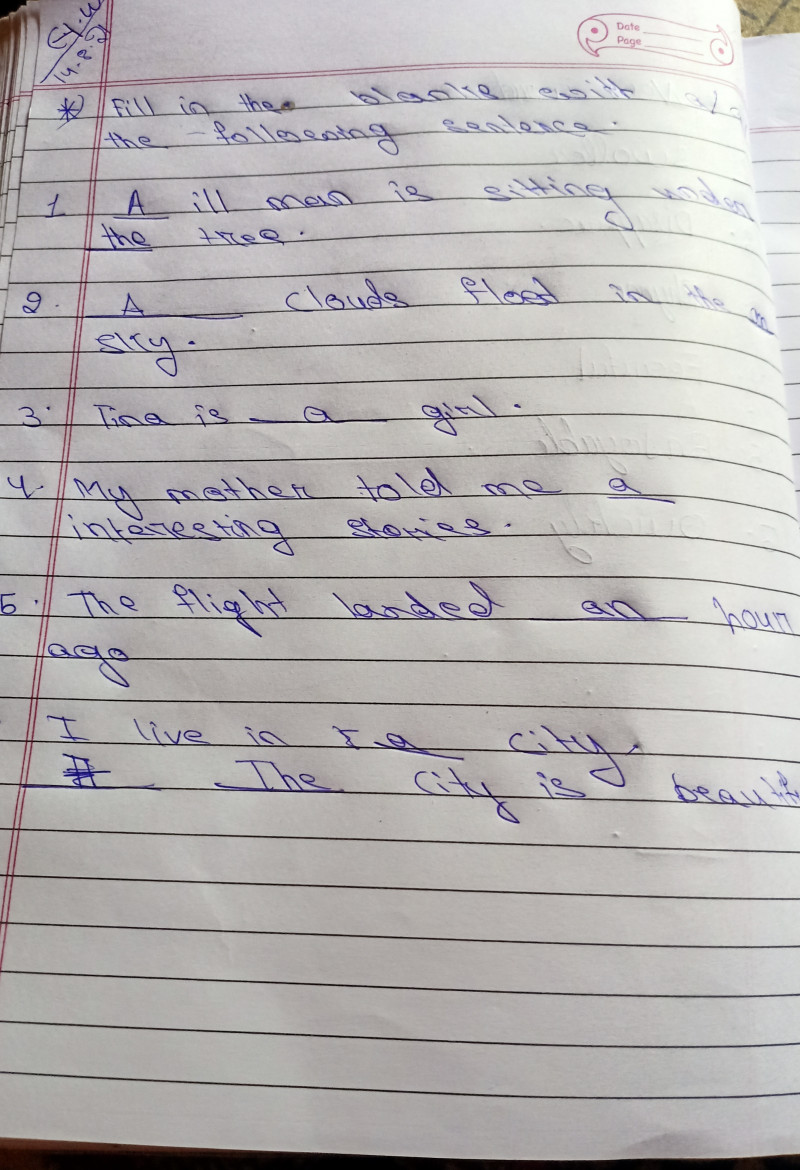 C.W
14-8-2
Date
Page
* Fill in the blanks with a/
the following sentence.
1 A ill man is sitting under
the tree.
2. A clouds float in the
sky.
3. Tina is a girl.
4. My mother told me a
interesting stories.
5. The flight landed an hour
ago
I live in a city.
The city is beautif